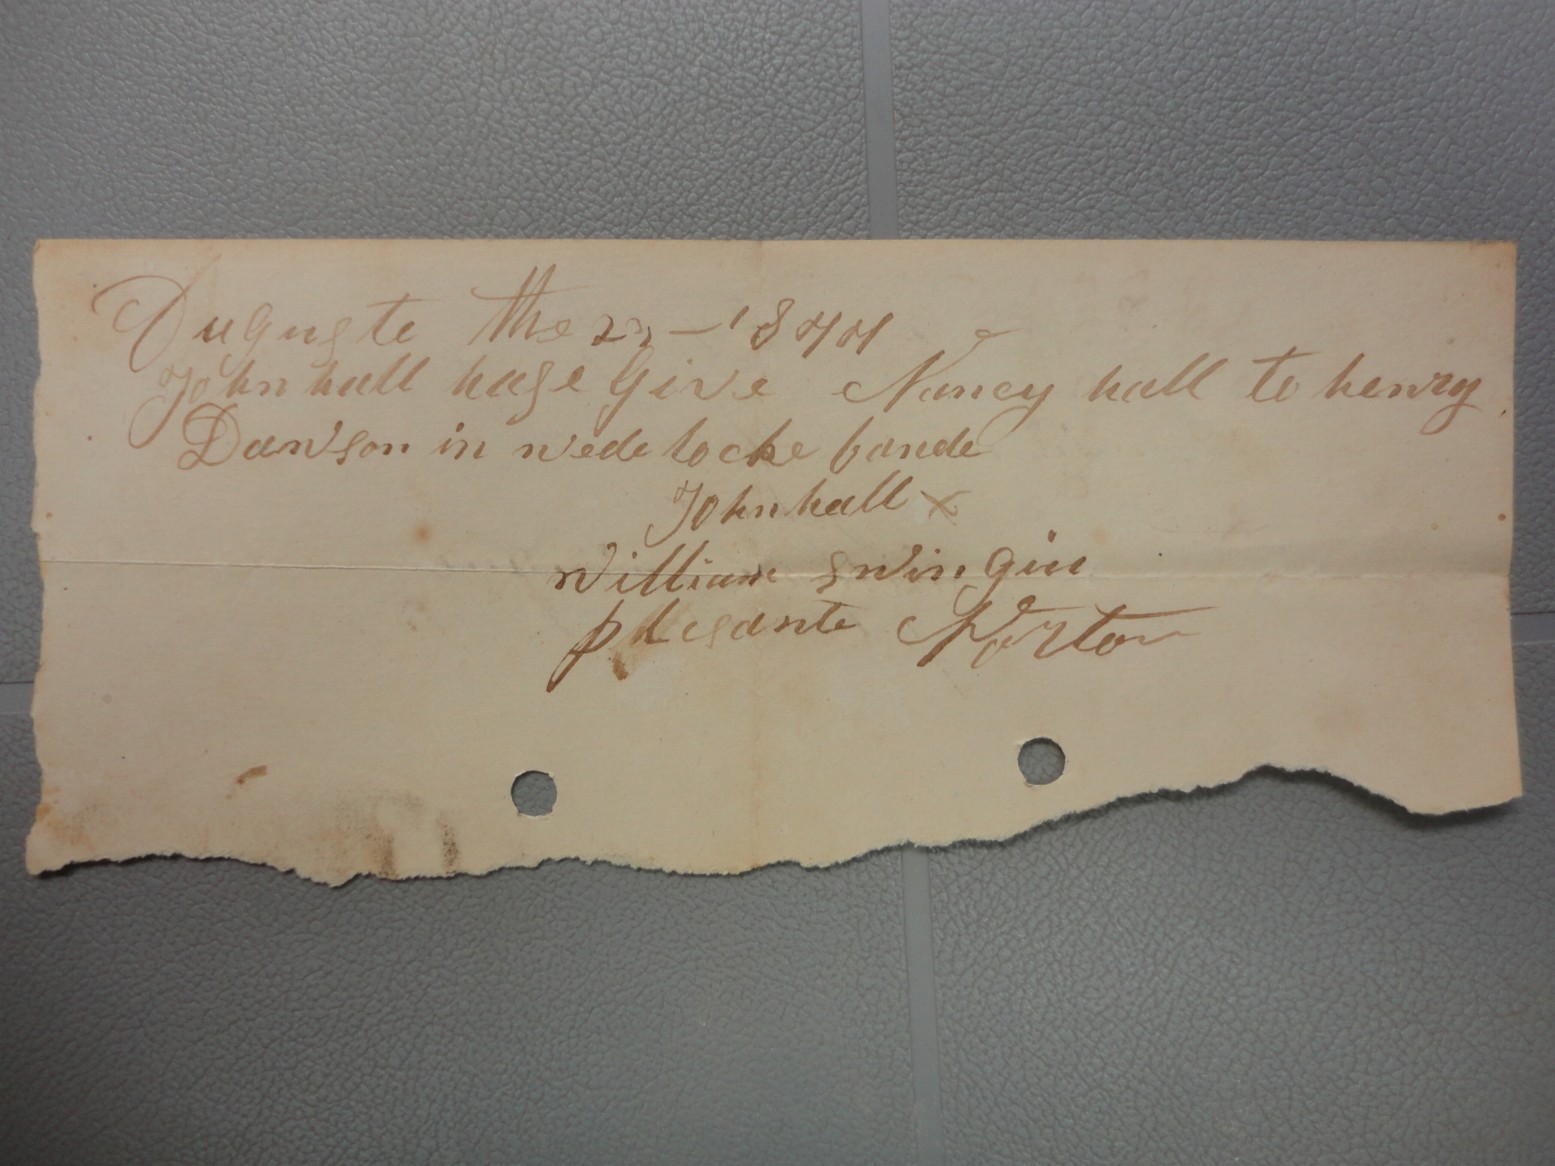 Auguste the 22 — 1844
John hall hase Give Nancy hall to henry
Dawson in wede locke bande
John hall X
William swingin
plesante Norton